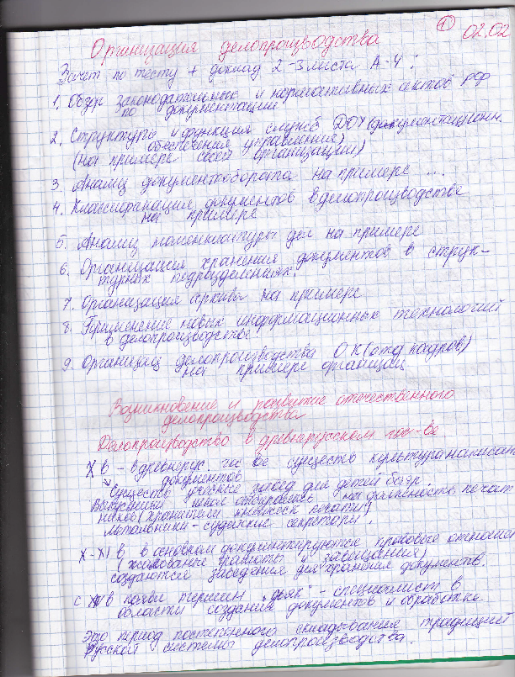 1
02.02
Организация делопроизводства
Зачёт по тесту + доклад 2-3 листа А-4:
1. Обзор законодательных и нормативных актов РФ
по документации
2. Структура и функция служб ДОУ (документационн.
обеспечения управления)
(на примере своей организации)
3. Анализ документооборота на примере ...
4. Классификация документов в делопроизводстве
на примере
5. Анализ номенклатуры дел на примере
6. Организация хранения документов в струк-
турных подразделениях.
7. Организация архива на примере
8. Применение новых информационных технологий
в делопроизводстве.
9. Организац делопроизводства ОК (отд кадров)
на примере организации
Возникновение и развитие отечественного
делопроизводства
Делопроизводство в древнерусском гос-ве
X в - в древнерус. гос-ве существ культура написан
документов
Существ училище для детей бояр.
на должность печат
ников (хранители княжеск печати)
- судейские секретари.
X-XI в в основном документируются правовые отношен
(жалованные грамоты и завещания)
создаются заведения для хранения документов.
с в появи термин "дьяк" - специалист в
области создания документов и обработке.
Это период постепенного складывания традиций
Русской системы делопроизводства.